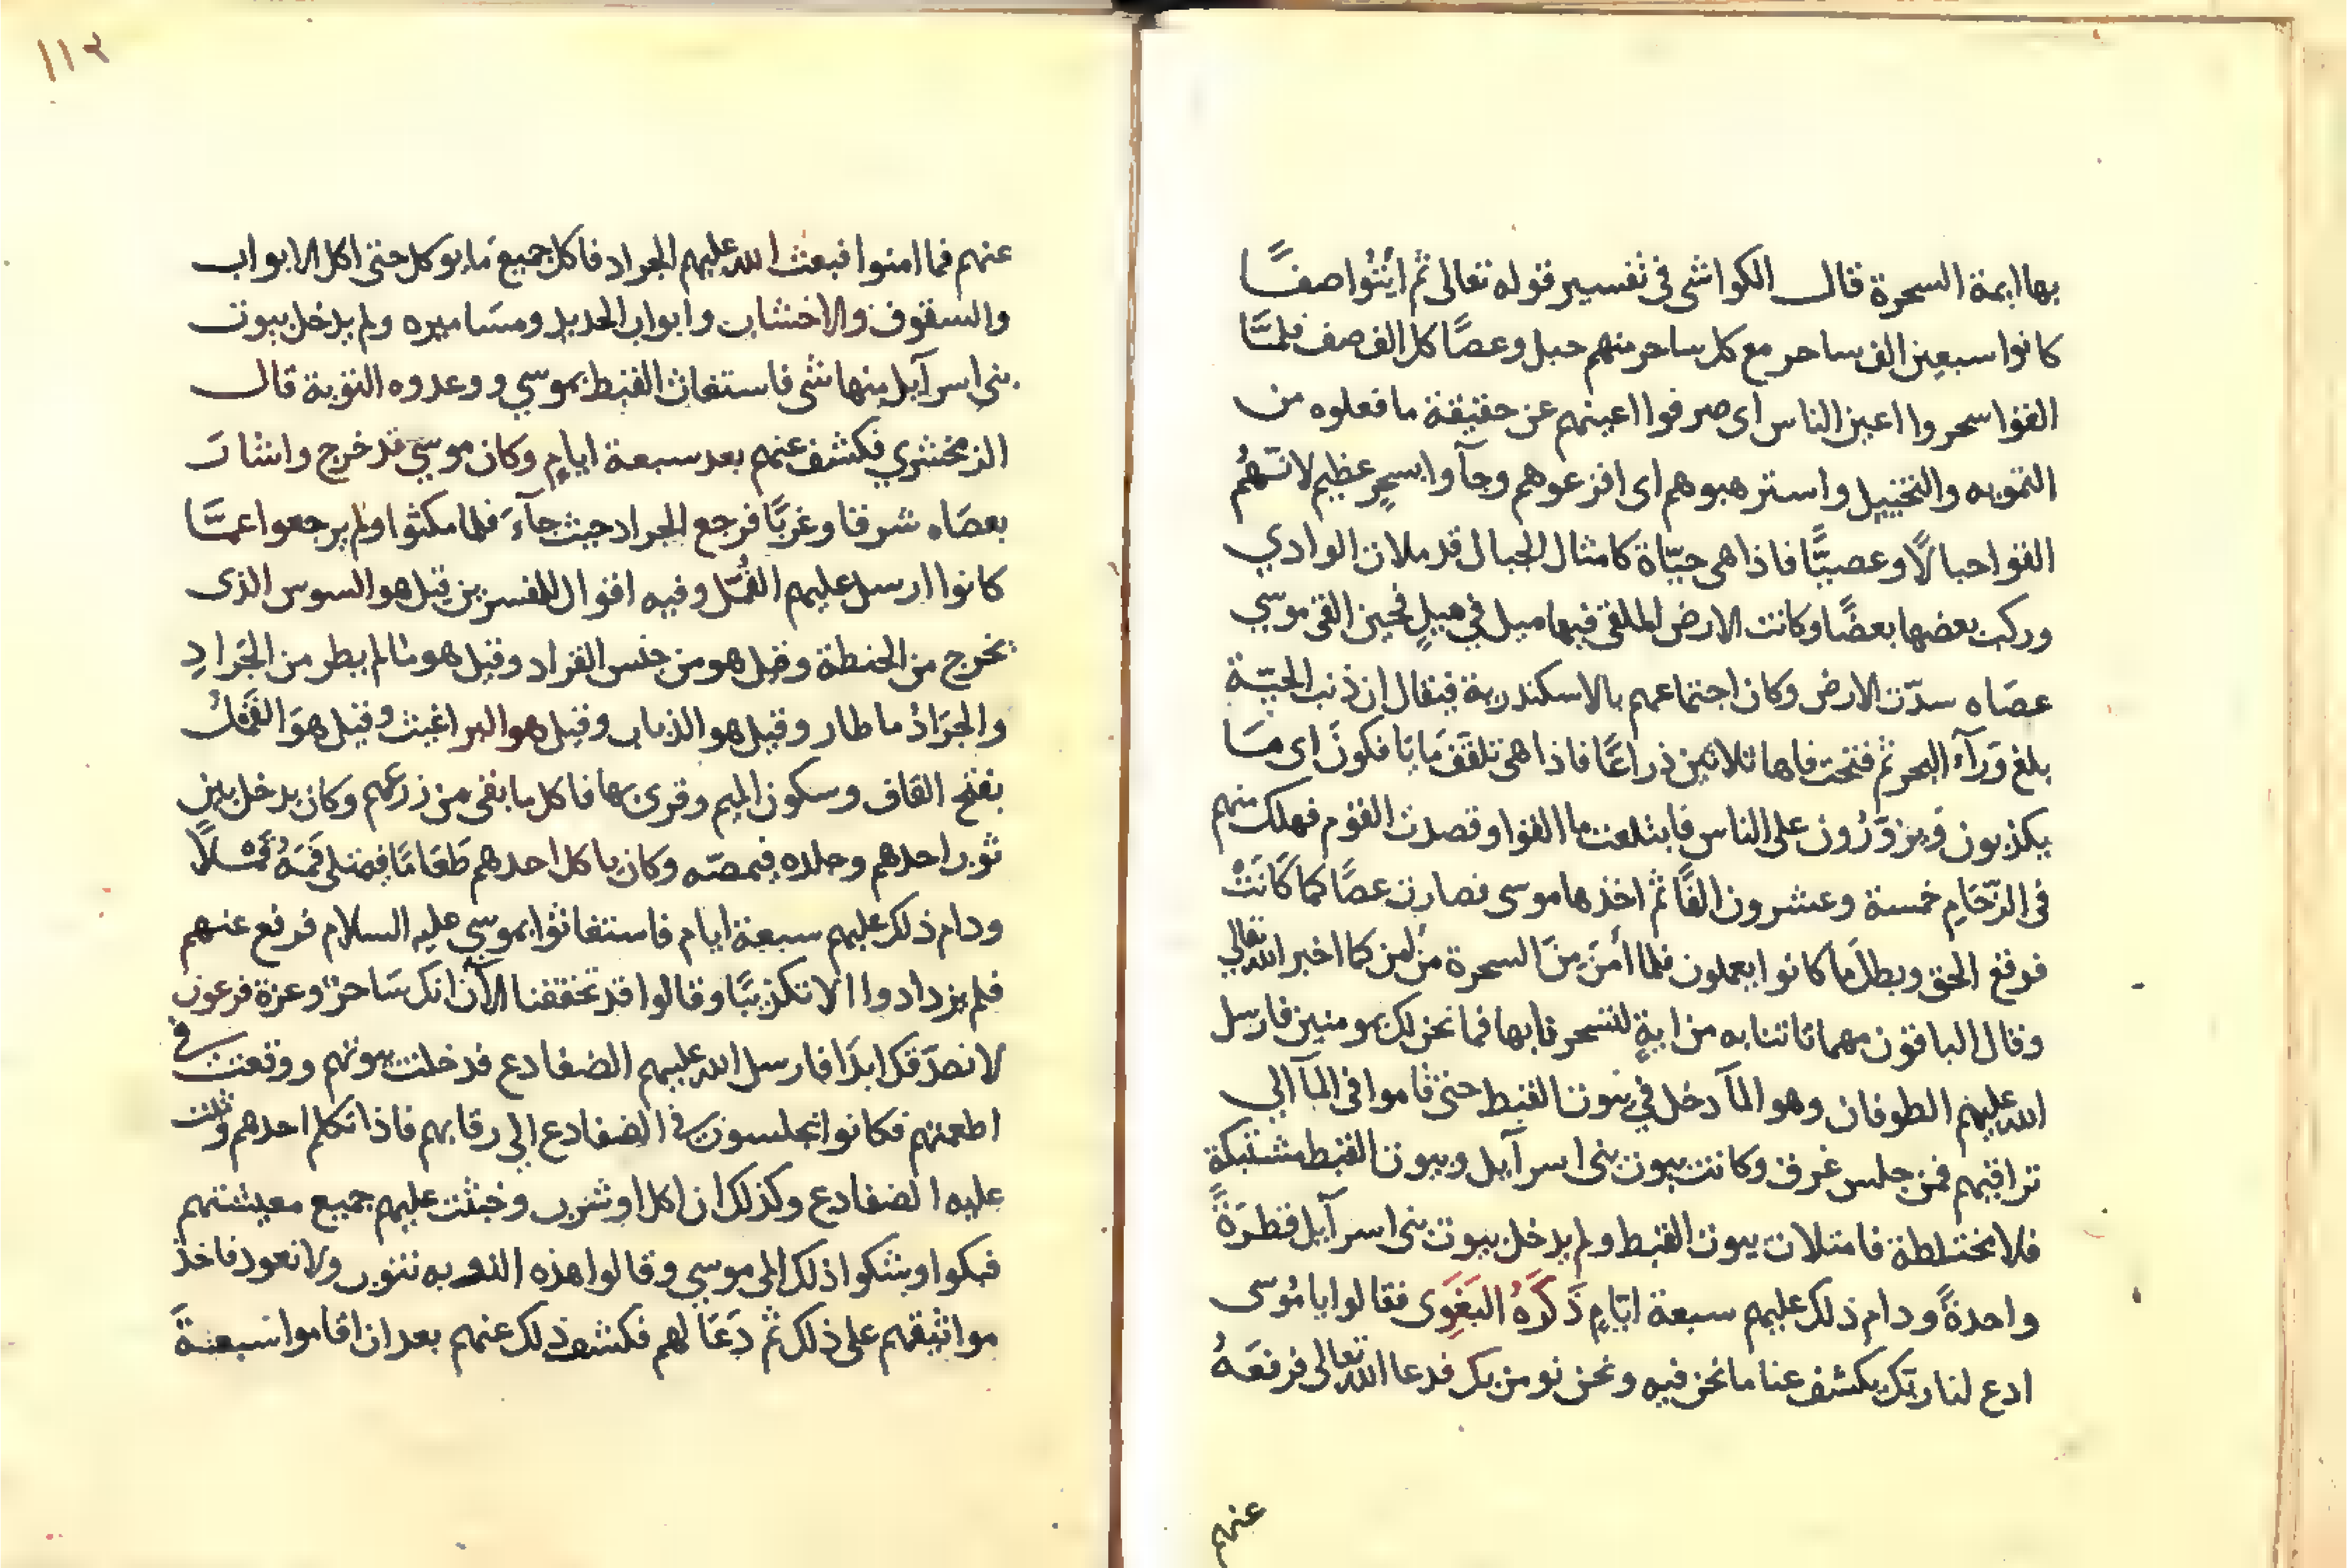 بها ايمة السحرة قال الكواشى فى تفسير قوله تعالى ثم ائتوا صفًّا
كانوا سبعين الف ساحر مع كل ساحر منهم حبل وعصًا كل الف صف فلمَّا
القوا سحروا اعين الناس اى صرفوا اعينهم عن حقيقة ما فعلوه من
التمويه والتخييل واسترهبوهم اى افزعوهم وجآوا بسحرٍ عظيم لانهُم
القوا حبالًا وعصيًّا فاذا هى حيّاة كامثال الجبال قد ملات الوادي
وركب بعضها بعضًا وكانت الارض الملقى فيها ميل في ميلٍ فحين القى موسي
عصَاه سدّت الارض وكان اجتماعهم بالاسكندرية فيقال ان ذنب الحيّة
بلغ وَرآء البحر ثم فتحت فاها ثلاثين ذراعًا فاذا هى تلقف مَا يَا فكونَ اى مَا
يكذبون ويزوّرُون على الناس فابتلعت ما القوا وقصدت القوم فهلك منهم
فى الزّحَامِ خمسة وعشرون الفًا ثم اخذها موسى فصارت عصًا كما كَانَتْ
فوقع الحق وبطل مَا كانوا يعملون فلما اٰمَنَ مِنَ السحرة مَنْ اٰمن كما اخبر الله تعالي
وقال الباقون مهما تاتنا به من ايةٍ لتسحرنا بها فما نحن لك بمومنين فارسل
الله عليهم الطوفان وهو المآ دخل في بيوت القبط حتى قاموا فى المآ الي
تراقيهم فمن جلس غرق وكانت بيوت بنى اسرآيل وبيوت القبط مشتبكة
فلا مختلطة فامتلات بيوت القبط ولم يدخل بيوت بنى اسرآيل قطرَةً
واحدةً ودام ذلك عليهم سبعة ايّامٍ ذَكَرَهُ البَغَوَى فقالوا يا مُوسَى
ادع لنا ربّك يكشف عنا ما نحن فيه ونحن نومن بك فدعا الله تعالى فرفعَهُ
عنهم
١١٣
عنهم فما امنوا فبعث الله عليهم الجراد فاكل جميع مَا يوكل حتى اكل الابواب
والسقوف والاخشاب وابواب الحديد ومسَاميره ولم يدخل بيوت
بنى اسرآيل منها شى فاستغاث القبط بموسي ووعدوه التوبة قال
الزمخشري فكشف عنهم بعد سبعة ايامٍ وكان موسي قد خرج واشارَ
بعصَاه شرقا وغربًا فرجع الجراد حيث جآءَ فلما مكثوا ولم يرجعوا عمَّا
كانوا ارسل عليهم القُمّل وفيه اقوال للمفسرين قيل هو السوس الذى
يخرج من الحنطة وقيل هو من جنس القراد وقيل هو مَا لم يطر من الجَرادِ
والجرَادُ ما طار وقيل هو الذباب وقيل هو البراغيث وقيل هوَ القَمْلُ
بفتح القاف وسكون الميم وقرى بها فاكل ما بقى من زرعهم وكان يدخل بين
ثوب احدهم وجلده فيمصّه وكان ياكل احدهم طَعَامًا فيمتلى فَمَهُ قَمْلًا
ودام ذلك عليهم سبعة ايام فاستغاثوا بموسي عليه السلام فرفع عنهم
فلم يزدادوا الا تكذيبًا وقالوا قد تحققنا الآن انك سَاحرٌ وعزة فرعون
لا نصدّقك ابدًا فارسل الله عليهم الضفادع فدخلت بيوتهم ووقعت في
اطعمتهم فكانوا يجلسون في الضفادع الي رقابهم فاذا تكلم احدهم وثبت
عليه الضفادع وكذلك ان اكل او شرب وخبثت عليهم جميع معيشتهم
فبكوا وشكوا ذلك الى موسي وقالوا هذه النوبه نتوب ولا نعود فاخذ
مواثيقهم على ذلك ثم دَعَا لهم فكشف ذلك عنهم بعد ان اقاموا سبعةَ